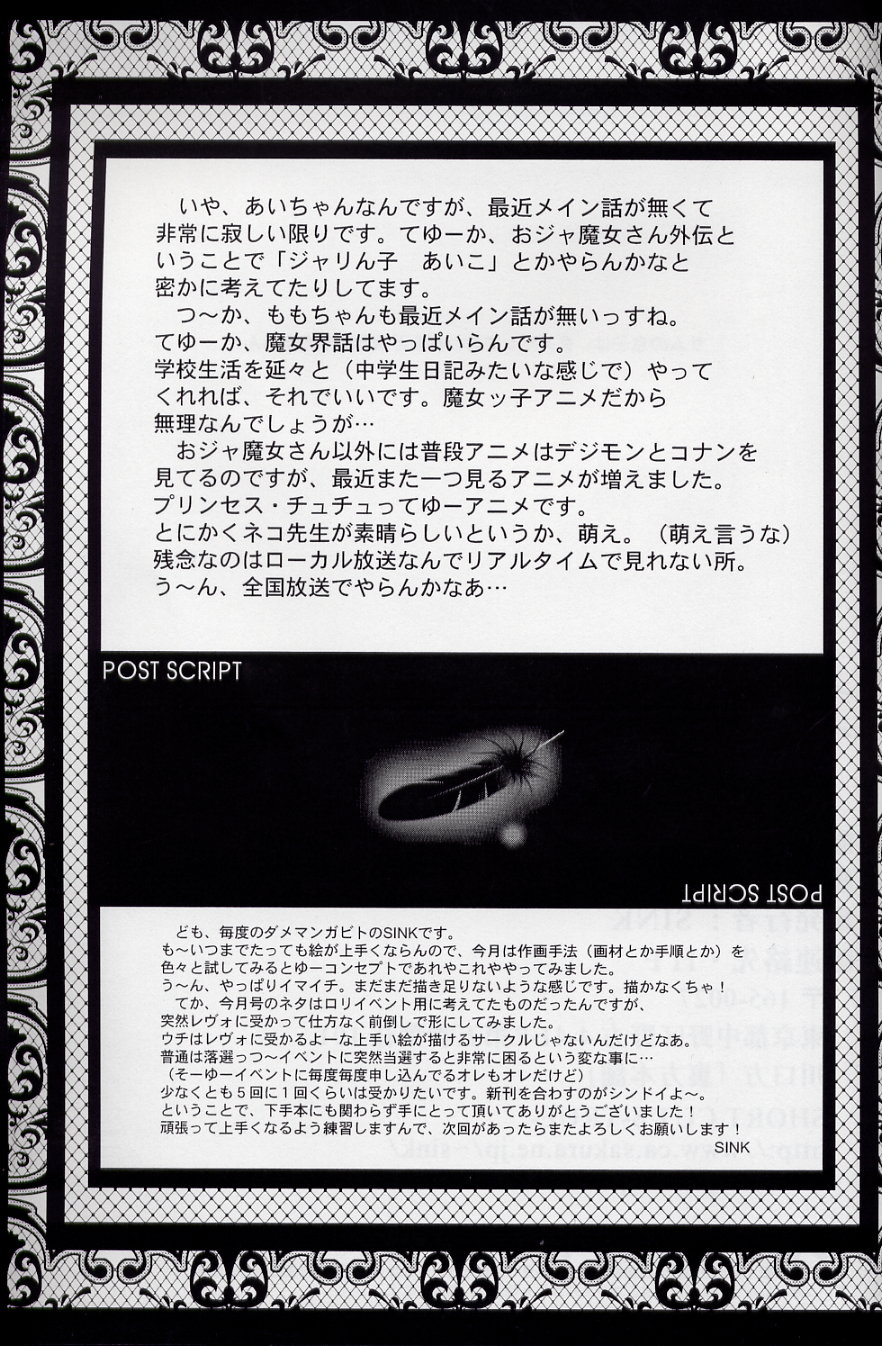 いや、あいちゃんなんですが、最近メイン話が無くて
非常に寂しい限りです。てゆーか、おジャ魔女さん外伝と
いうことで「ジャリん子　あいこ」とかやらんかなと
密かに考えてたりしてます。
つ～か、ももちゃんも最近メイン話が無いっすね。
てゆーか、魔女界話はやっぱいらんです。
学校生活を延々と（中学生日記みたいな感じで）やって
くれれば、それでいいです。魔女ッ子アニメだから
無理なんでしょうが…
おジャ魔女さん以外には普段アニメはデジモンとコナンを
見てるのですが、最近また一つ見るアニメが増えました。
プリンセス・チュチュってゆーアニメです。
とにかくネコ先生が素晴らしいというか、萌え。（萌え言うな）
残念なのはローカル放送なんでリアルタイムで見れない所。
う～ん、全国放送でやらんかなあ…
POST SCRIPT
POST SCRIPT
ども、毎度のダメマンガビトのSINKです。
も～いつまでたっても絵が上手くならんので、今月は作画手法（画材とか手順とか）を
色々と試してみるとゆーコンセプトであれやこれややってみました。
う～ん、やっぱりイマイチ。まだまだ描き足りないような感じです。描かなくちゃ！
てか、今月号のネタはロリイベント用に考えてたものだったんですが、
突然レヴォに受かって仕方なく前倒しで形にしてみました。
ウチはレヴォに受かるよーな上手い絵が描けるサークルじゃないんだけどなあ。
普通は落選っつ～イベントに突然当選すると非常に困るという変な事に…
（そーゆーイベントに毎度毎度申し込んでるオレもオレだけど）
少なくとも５回に１回くらいは受かりたいです。新刊を合わすのがシンドイよ～。
ということで、下手本にも関わらず手にとって頂いてありがとうございました！
頑張って上手くなるよう練習しますんで、次回があったらまたよろしくお願いします！
SINK